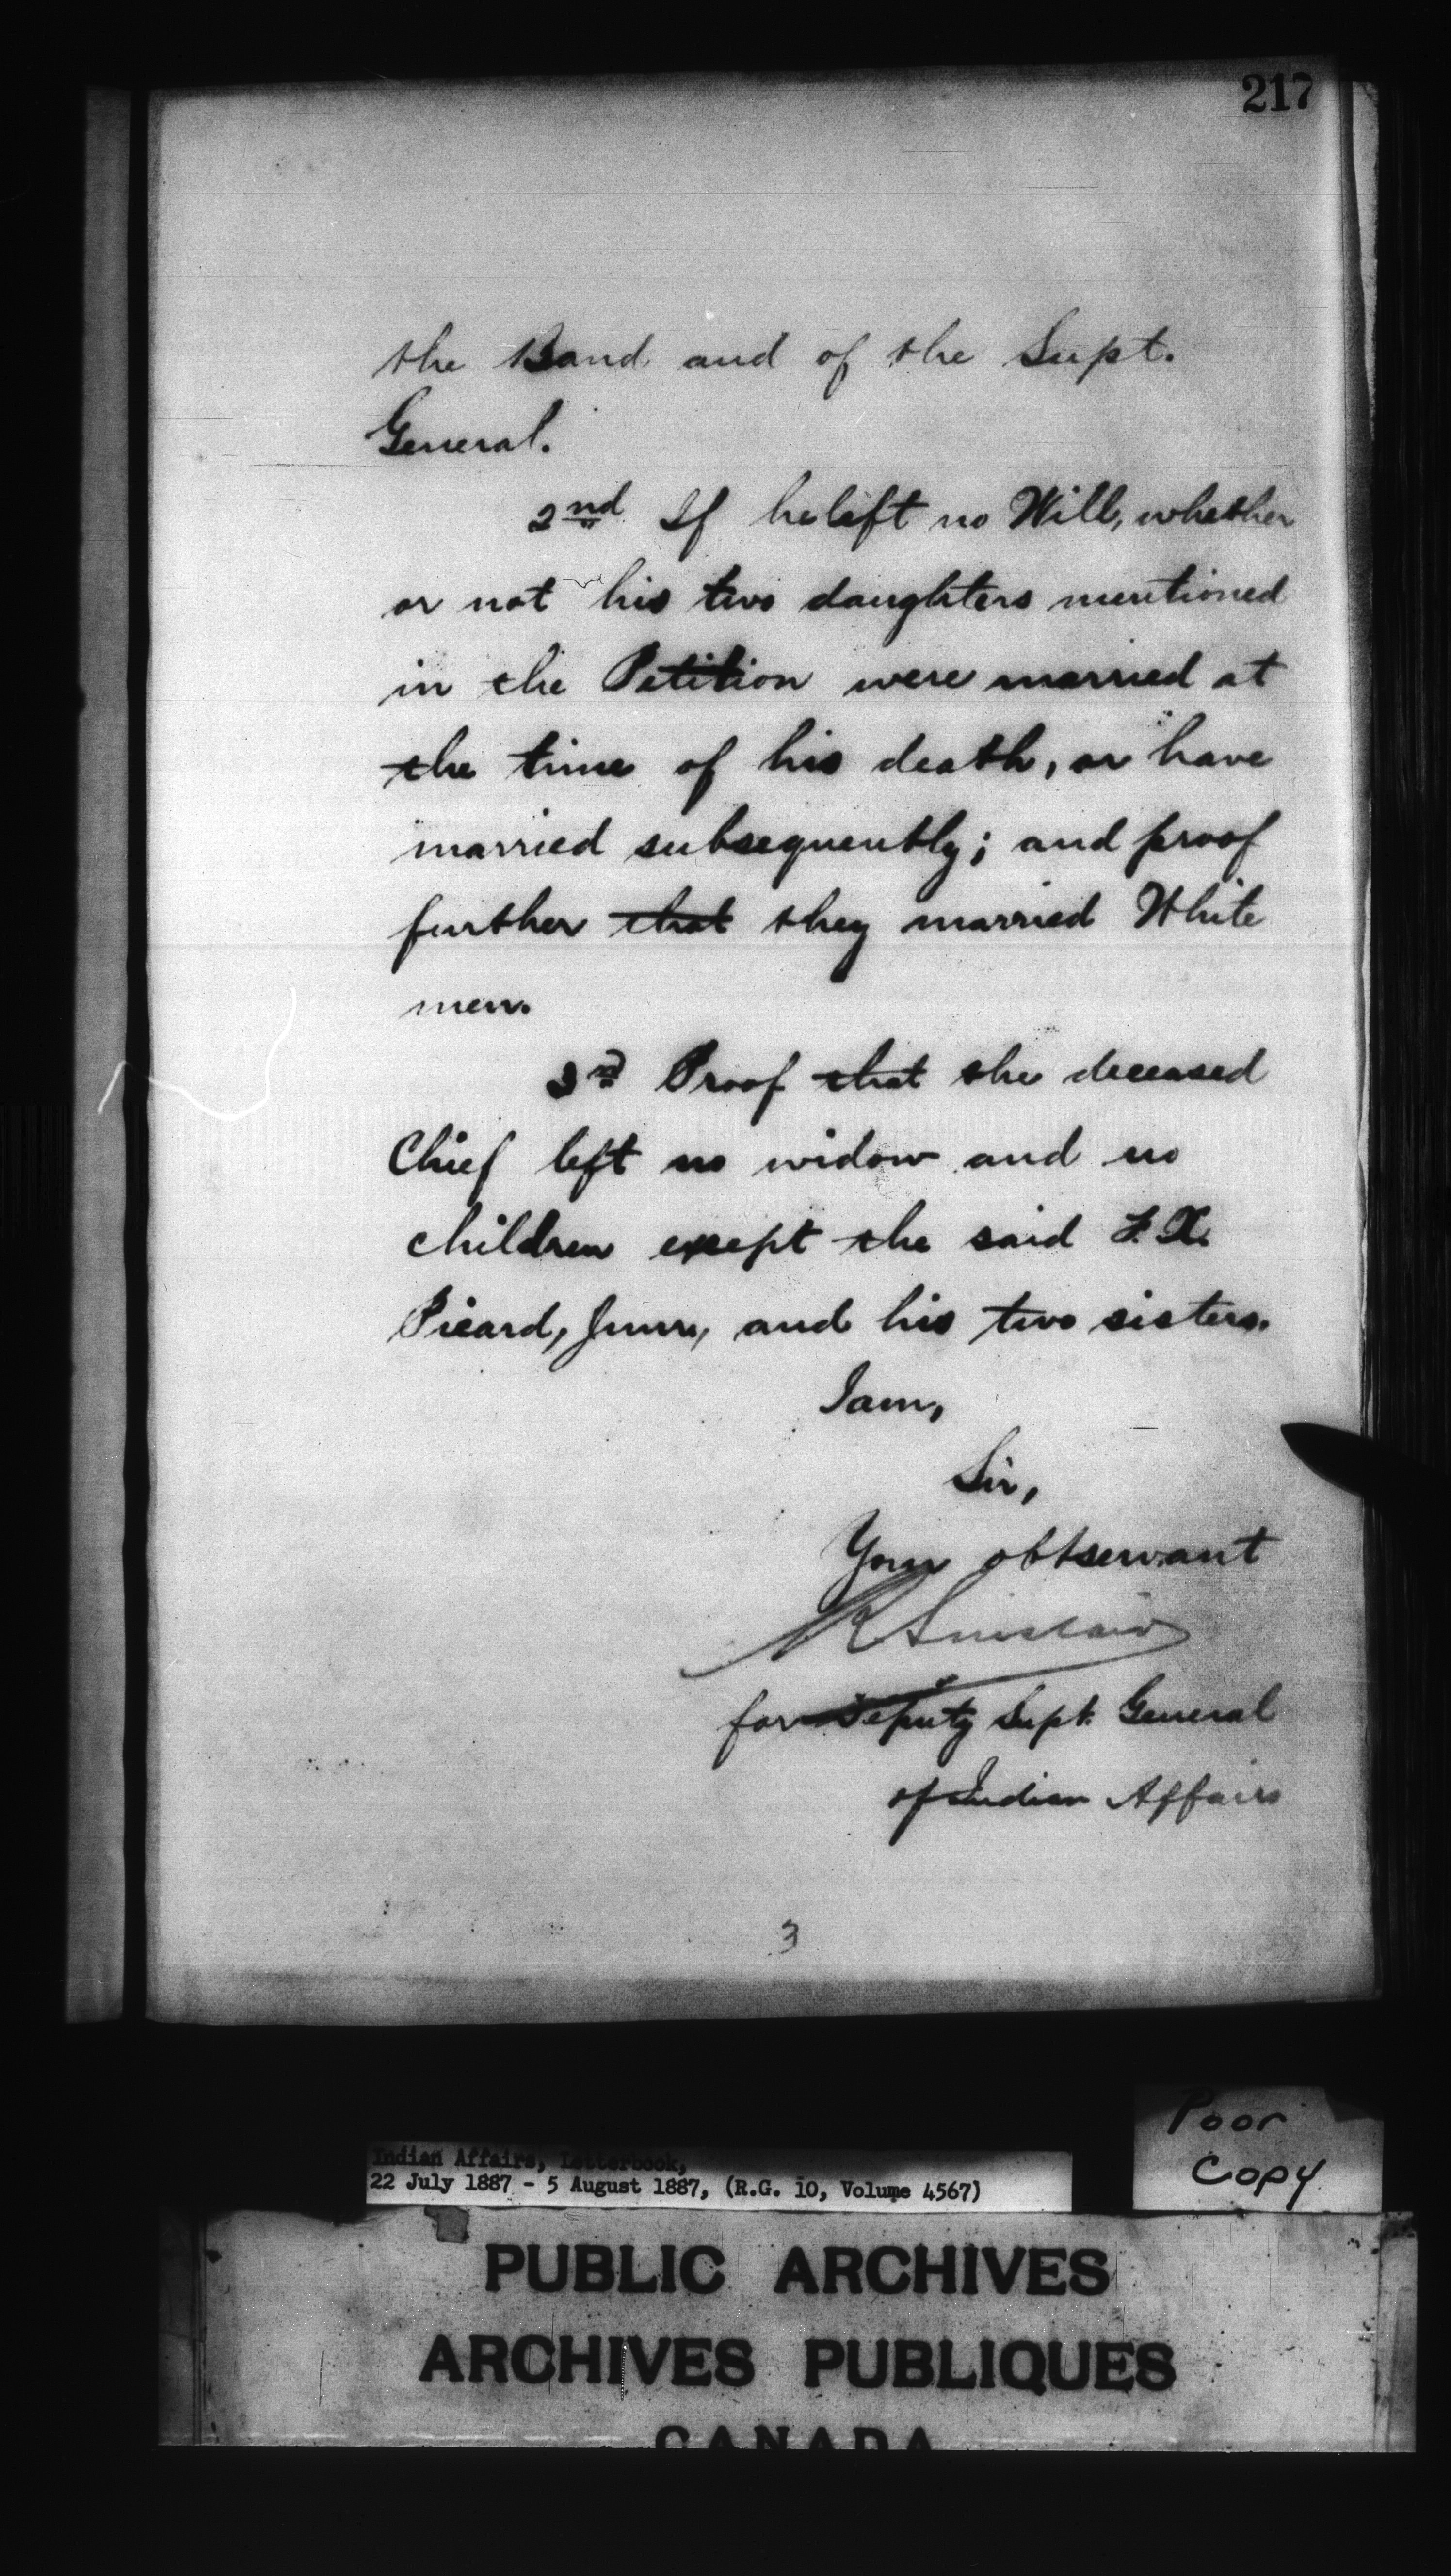 217
the Band and of the Supt.
General.
2nd If he left no Will, whether
or not his two daughters mentioned
in the Petition were married at
the time of his death, or have
married subsequently; and proof
further that they married White
men.
3rd Proof that the deceased
Chief left no widow and no
children except the said F. X.
Picard, Junr, and his two sisters.
I am,
Sir,
Your obt servant
R Sinclair
for Deputy Supt. General
of Indian Affairs
3
Poor
Copy
Indian Affairs, Letterbook,
22 July 1887 - 5 August 1887, (R.G. 10, Volume 4567)
PUBLIC ARCHIVES
ARCHIVES PUBLIQUES
CANADA